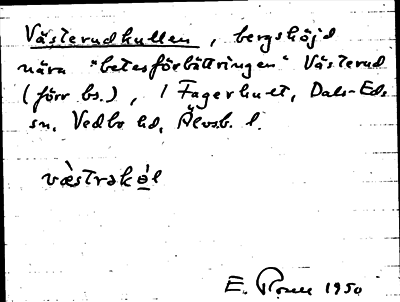 Västerudkullen, bergshöjd
nära "betesförbättringen" Västerud
(förr bs.), / Fagerhult, Dals-Eds
sn, Vedbo hd, Älvsb. l.
væ̀strakə́l
E. 1950